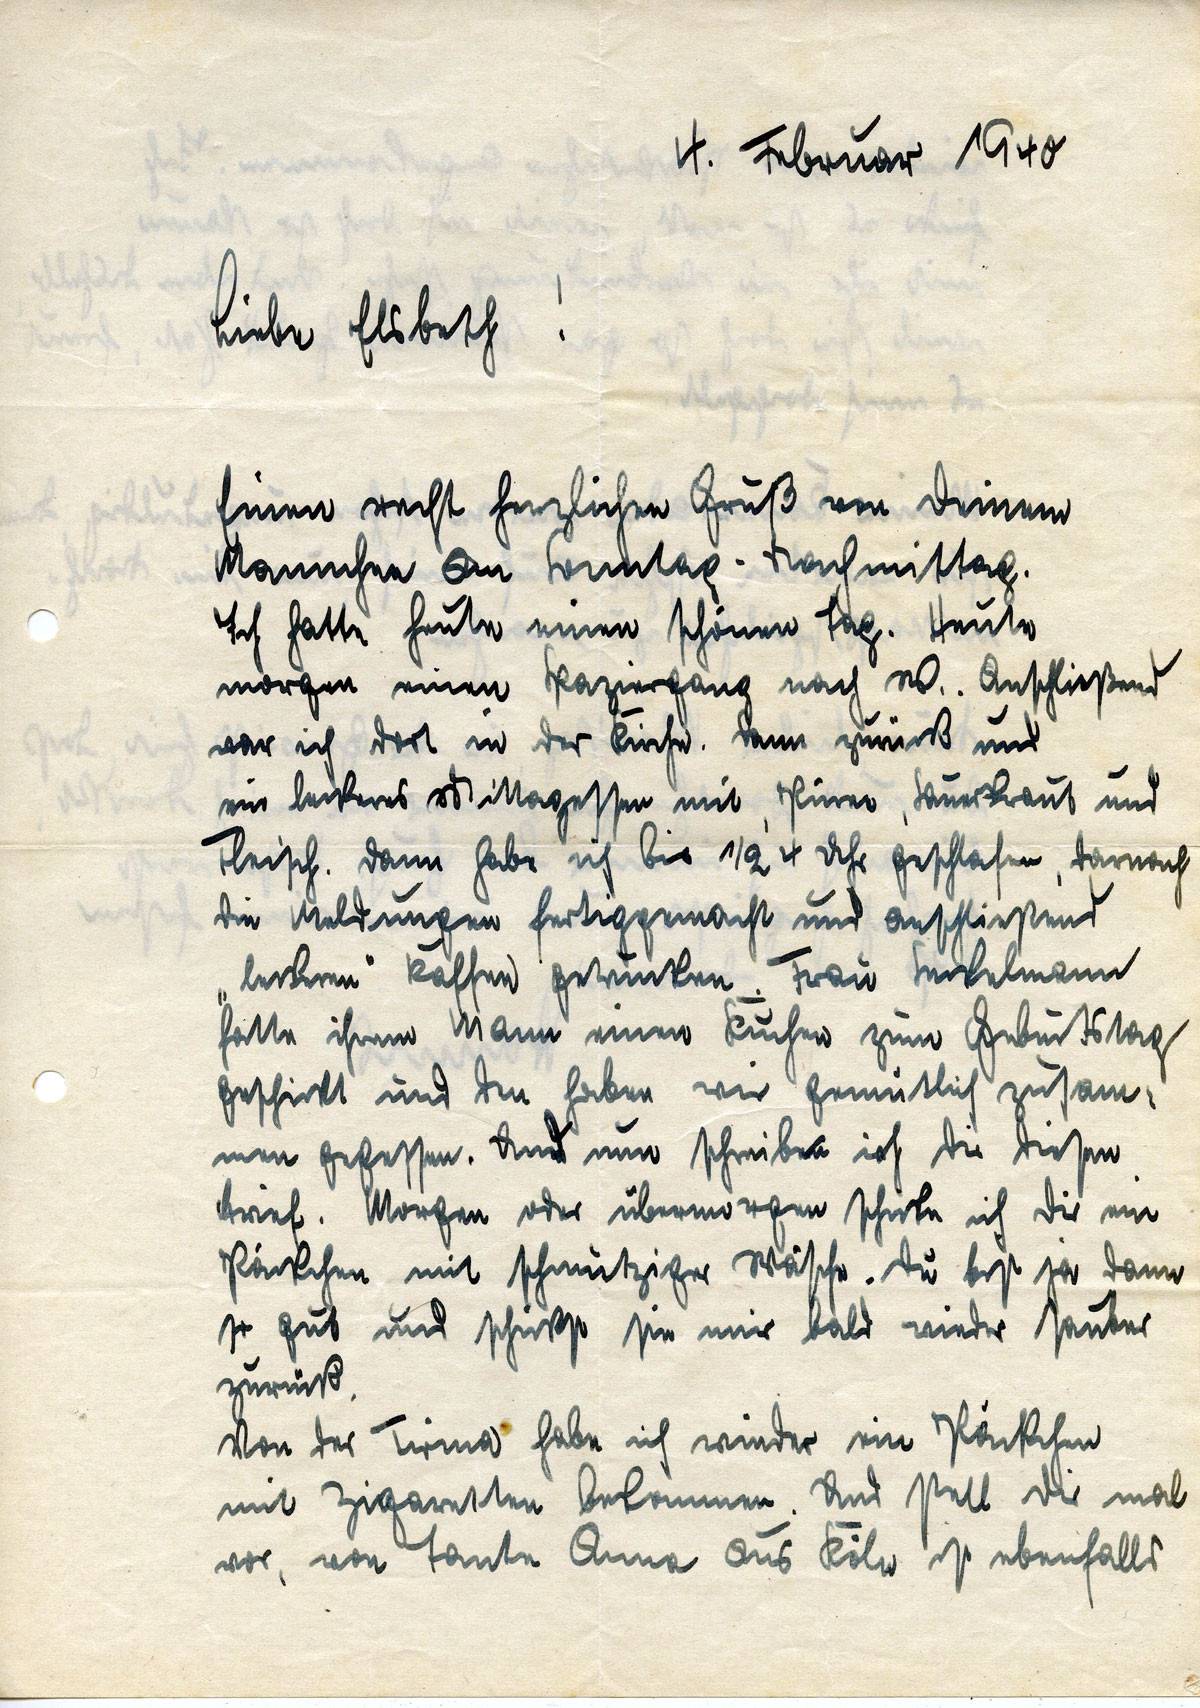 4. Februar 1940
Liebe Elsbeth !
Einen recht herzlichen Gruß von Deinem
Mannchen am Sonntag-Nachmittag.
Ich hatte heute einen schönen Tag. Heute
morgen einen Spaziergang nach W.. Anschließend
war ich dort in der Kirche. Dann zurück und
ein leckeres Mittagessen mit, Püree, Sauerkraut und
Fleisch. Dann habe ich bis 1/2 4 Uhr geschlafen, darnach
die Meldungen fertiggemacht und anschließend
„leckeren" Kaffee getrunken. Frau Seckelmann
hatte ihrem Mann einen Kuchen zum Geburtstag
geschickt und den haben wir gemütlich zusam=
men gegessen. Und nun schreibe ich Dir diesen
Brief. Morgen oder übermorgen schicke ich Dir ein
Päckchen mit schmutziger Wäsche. Du bist ja dann
so gut und schickst sie mir bald wieder sauber
zurück.
Von der Firma habe ich wieder ein Päckchen
mit Zigaretten bekommen. Und stell Dir mal
vor, von Tante Anna aus Köln ist ebenfalls